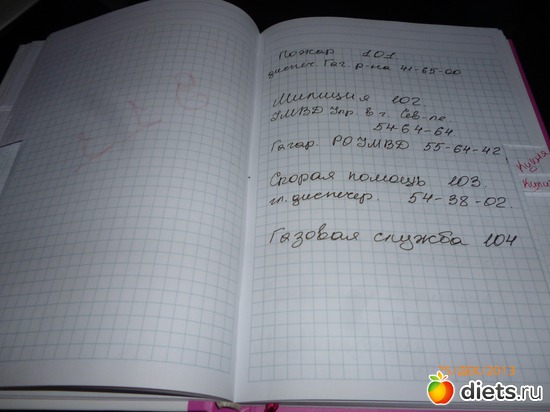 Пожар 101.
диспеч. Гаг. р-на 41-65-00
Милиция 102.
УМВД Упр. в г. Сев-ле
54 64-64
Гагар. РОУМВД 55-64-42
Скорая помощь 103.
гл. диспечер. 54-38-02.
Газовая служба 104
Кухня
diets.ru